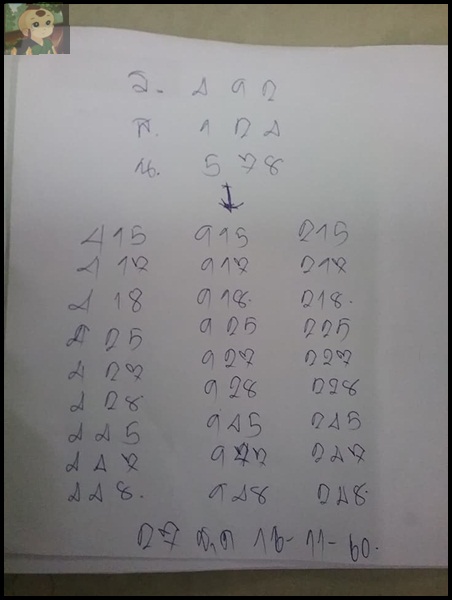 ร. 4 9 2
ส. 1 2 4
น. 5 7 8
↓
415 915 215
417 917 217
418 918. 218.
425 925 225
427 927 227
428 928 228
445 945 245
447 947 247
448. 948 248
27 ชุด 16-11-60.